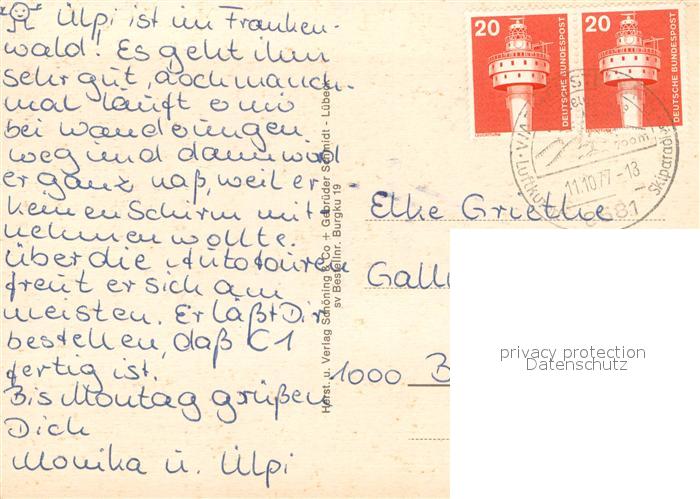 Ülpi ist im Franken-
wald! Es geht ihm
sehr gut, doch manch-
mal läuft er mir
bei Wanderungen
weg und dann wird
er ganz naß, weil er
keinen Schirm mit-
nehmen wollte.
Über die Autotouren
freut er sich am
meisten. Er läßt Dir
bestellen, daß C1
fertig ist.
Bis Montag grüßen
Dich
Monika u. Ülpi
Horst. u. Verlag Schöning & Co + Gebrüder Schmidt - Lübeck
sv Bestellnr. Burgku 19
20
DEUTSCHE BUNDESPOST
20
DEUTSCHE BUNDESPOST
700m
11.10.77-18
8681
Skiparadies
Elke Griethe
Gall
1000 B
privacy protection
Datenschutz